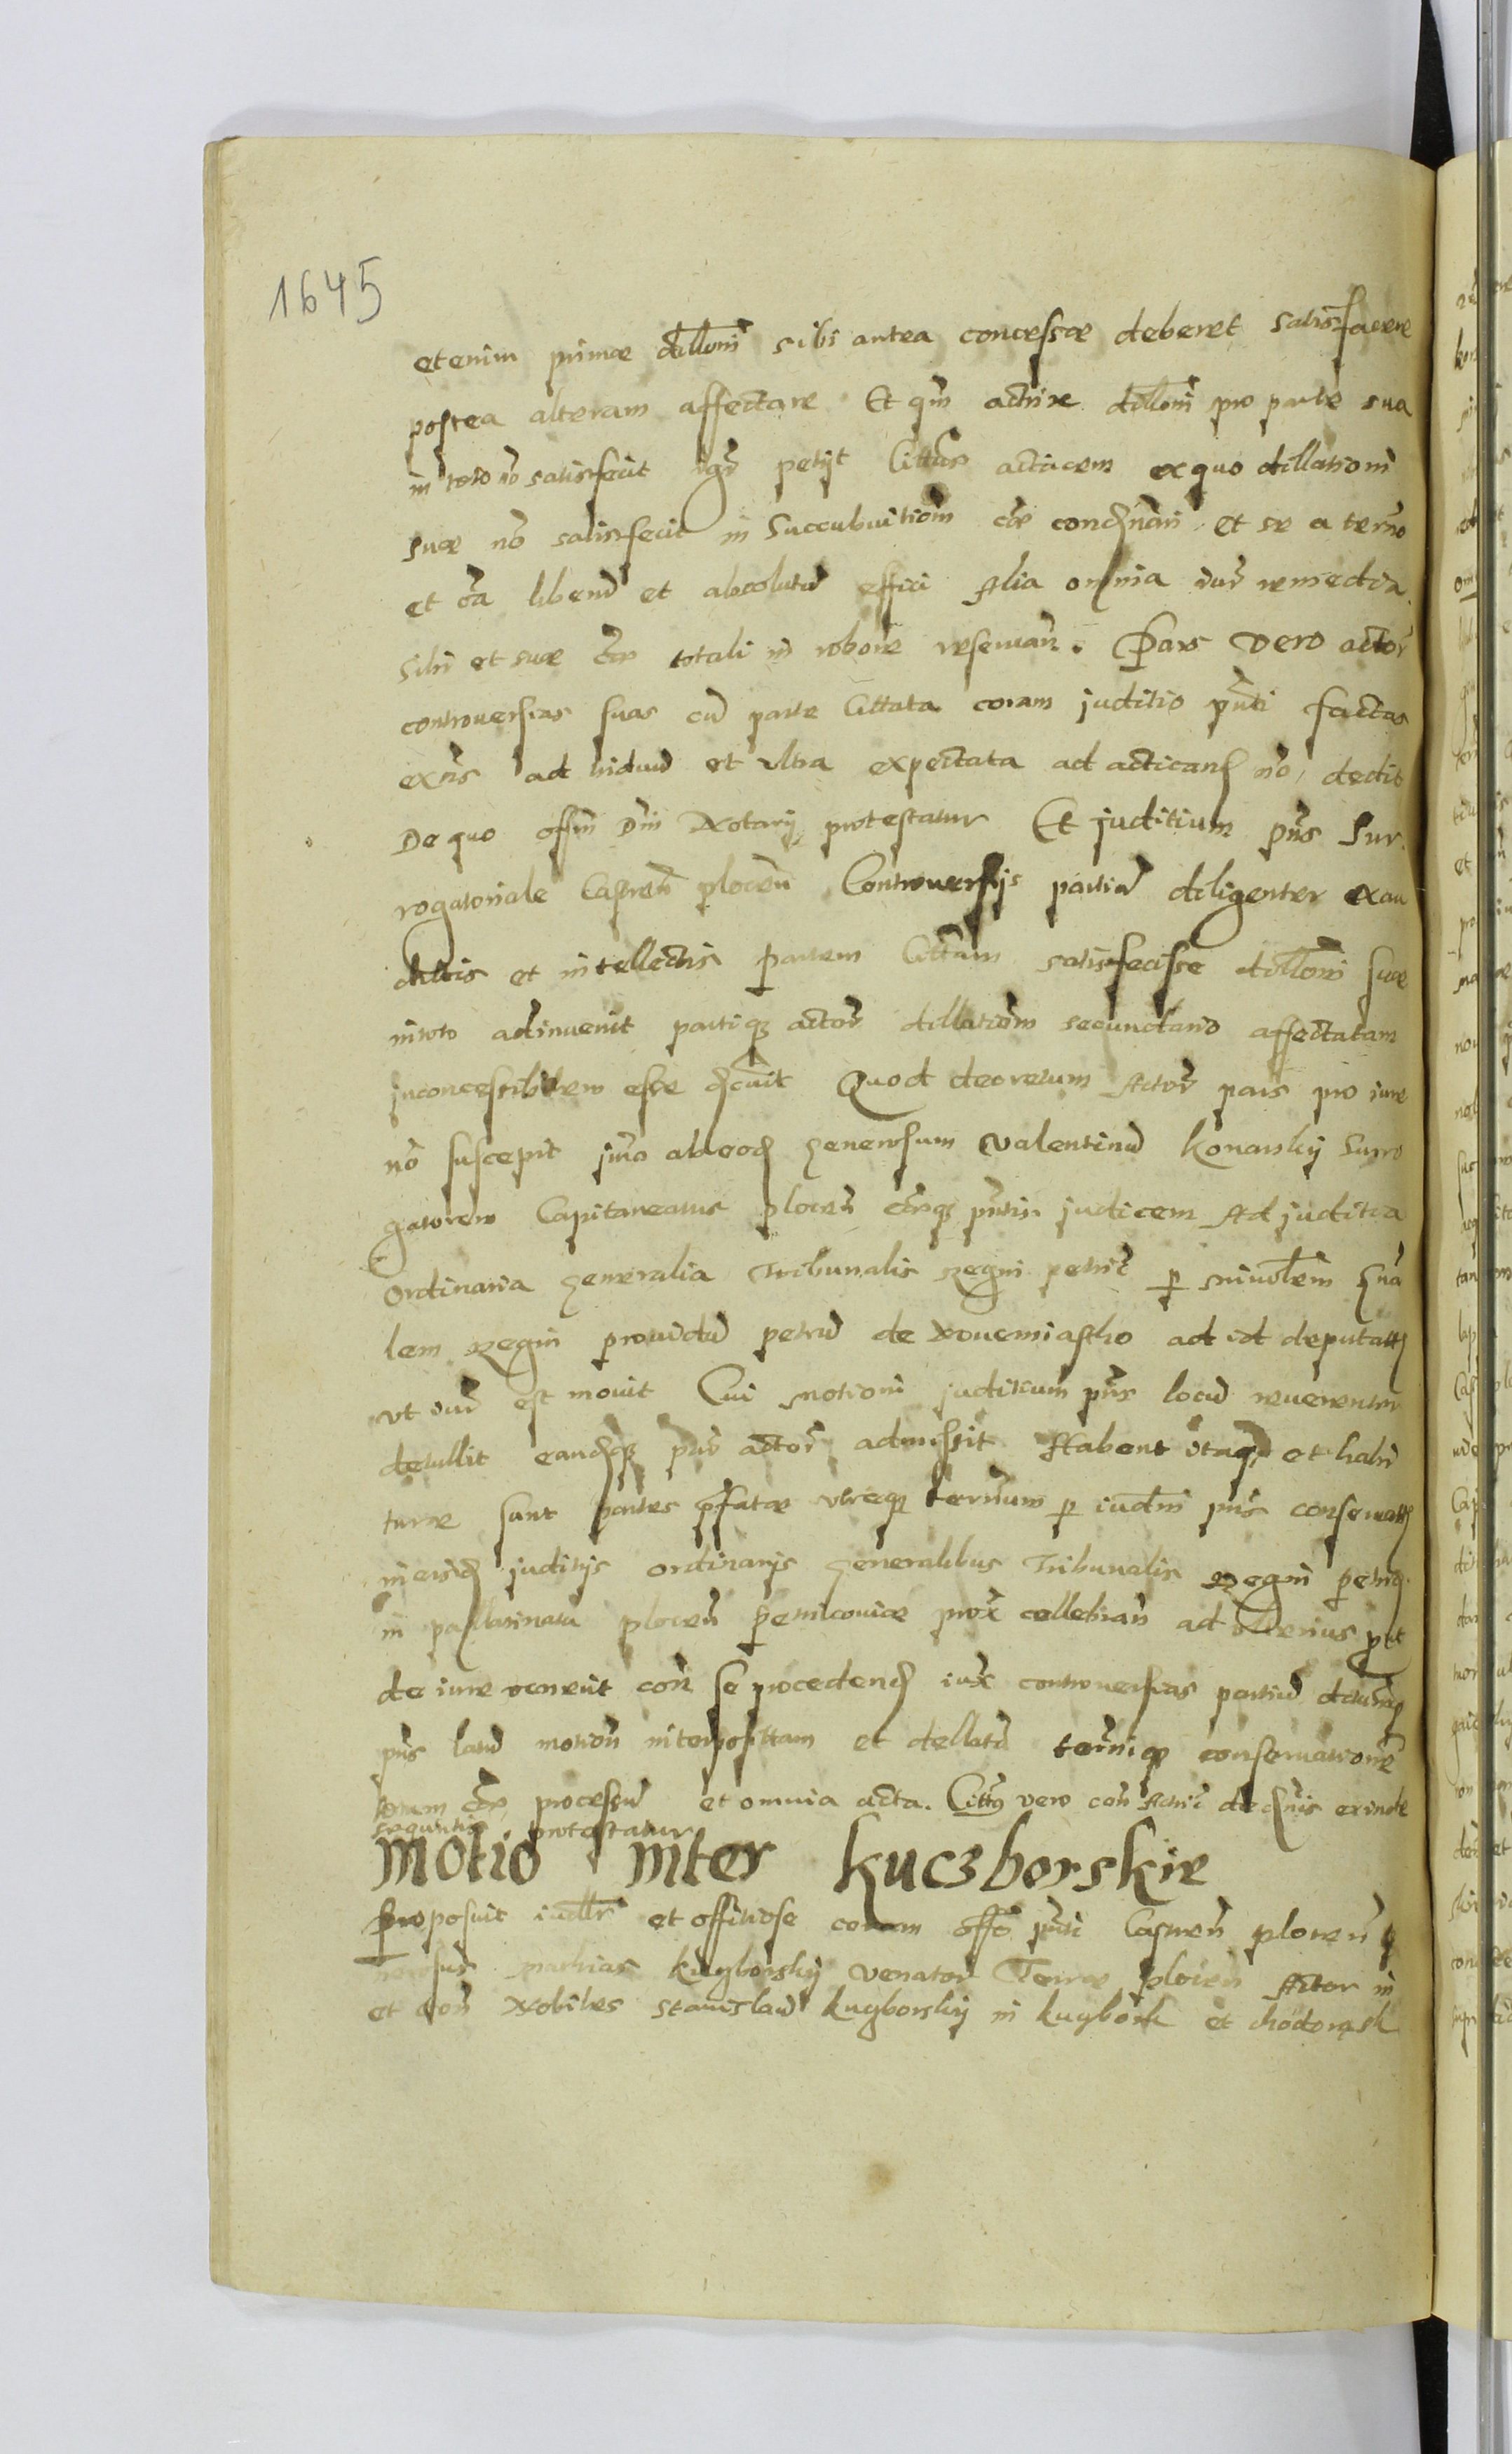 1645
etenim primæ dillōni sibi antea concessæ deberet satisfacere
postea alteram affectare Et qm̄ actrix dillōni pro parte sua
in toto nō satisfecit igr̄ petijt Citt̄us actricem ex quo dillationi
suæ nō satisfecit in Succubuitiōm cāe condemnari et se a termō
et cā liberū et absolutū effici Alia omnia iur̄ remedia
sibi et suæ cāe totali in robore reservan̄. Pars vero actor̄
controversias suas cū parte Cittata coram juditio pn̄ti factas
ex nc̄ ad triduū et ultra expectata ad acticand nō dedit
De quo offm̄ Dn̄i Notarij protestatur Et juditium pn̄s Sur
rogatoriale Castren̄ plocen̄ Controversijs partiū diligenter exau
dittis et intellectis partem Citt̄am satisfecisse dillōni suæ
in toto adinvenit partiq₃ actor̄ dillatiōm secundario affectatam
inconcessibilem esse decrevit Quod decretum Actor̄ pars pro iure
nō suscepit imō ab eod generosum Valentinū Konarskij Surro
gatorem Capitaneatus plocen̄ cāeq₃ pn̄tis judicem Ad juditia
Ordinaria generalia Tribunalis Regni petric̄ p ministlem gn̄a
lem Regni providū petrū de Novemiastho ad id deputatt
ut iur̄ est movit Cui motioni juditium pn̄s locū reverenter
detullit eandq₃ parti actor̄ admissit Habent itaq₃ et habi
turæ sunt partes p̄fatæ utræq₃ termum p iudm̄ pn̄s conservatt
in eisd juditijs ordinarijs generalibus Tribunalis Regni petric
in pallatinatu plocen̄ petricoviæ prox̄ cellebran̄ ad ulterius prt
de iure venerit corā se procedend iux̄ controversias partiū
pn̄s latū motiōn interpositam et dellatā termiq₃ conservationē
totum cāe processū et omnia acta. Citt̄us vero con̄ Actric̄ de damnis exinde
sequutis protestatur
Motio inter Kuczborskie
Proposuit iudllr̄ et offitiose coram offō pn̄ti Castren̄ plocen̄ g
nerosus Mathias Kuczborskij Venator Terræ plocen̄ Actor in
et con̄ Nobiles Stanislaū Kuczborskij in Kuczbork et